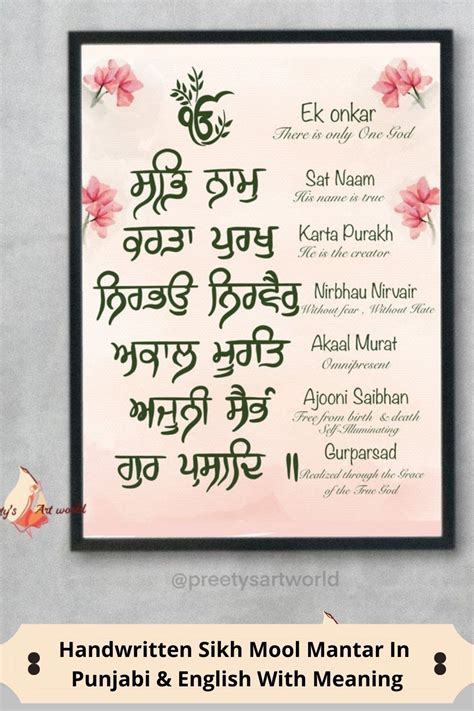 ੴ
Ek onkar
There is only One God
ਸਤਿ ਨਾਮੁ
Sat Naam
His name is true
ਕਰਤਾ ਪੁਰਖੁ
Karta Purakh
He is the creator
ਨਿਰਭਉ ਨਿਰਵੈਰੁ
Nirbhau Nirvair
Without fear , Without Hate
ਅਕਾਲ ਮੂਰਤਿ
Akaal Murat
Omnipresent
ਅਜੂਨੀ ਸੈਭੰ
Ajooni Saibhan
Free from birth & death
Self-Illuminating
ਗੁਰ ਪ੍ਰਸਾਦਿ ॥
Gurparsad
Realized through the Grace
of the True God
ty's Art world
@preetysartworld
Handwritten Sikh Mool Mantar In
Punjabi & English With Meaning